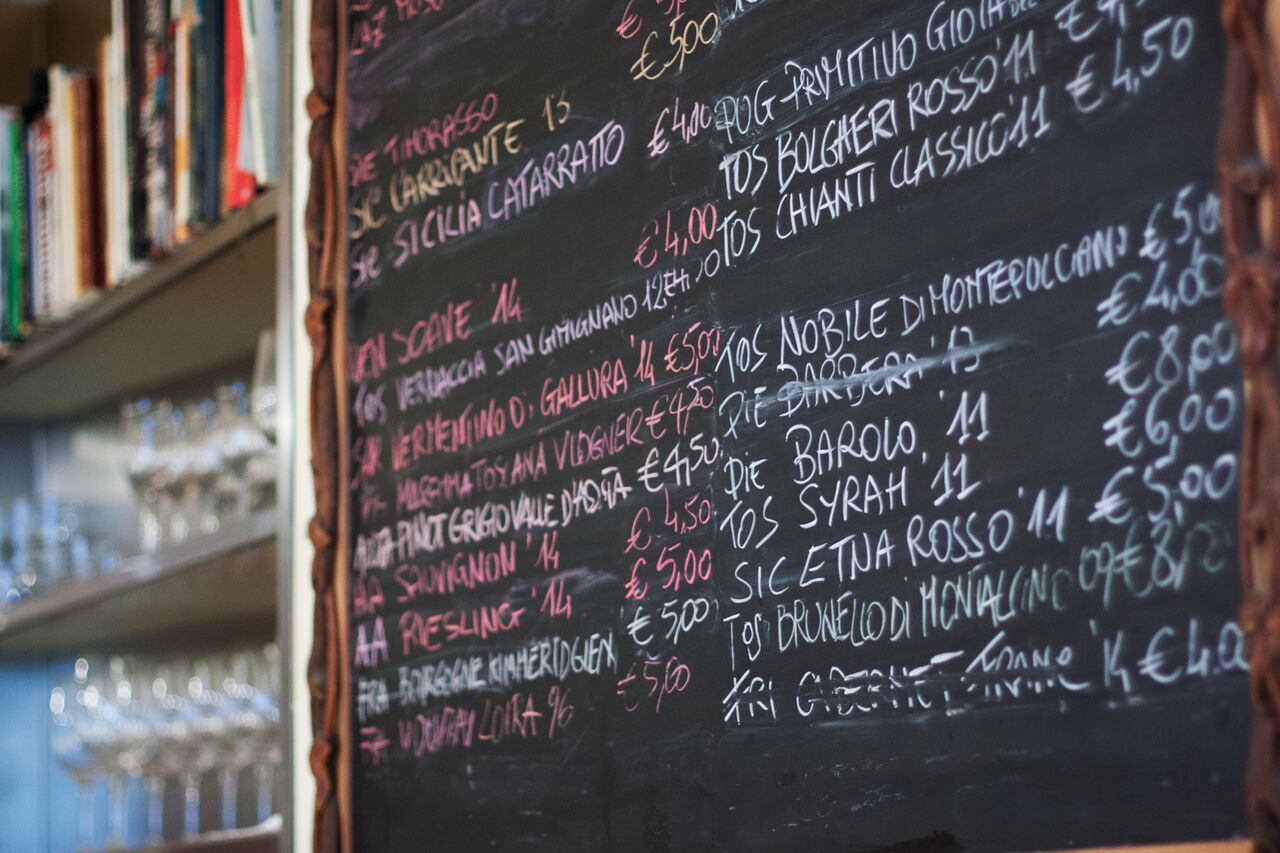 €5,00
PIE TIMORASSO
SIC CARRICANTE 13
SIC SICILIA CATARRATTO €4,00
€4,00
VEN SOAVE '14
TOS VERNACCIA SAN GIMIGNANO 12 €4,50
SAR VERMENTINO DI GALLURA '14 €5,00
MAREMMA TOSCANA VIOGNER €4,50
PINOT GRIGIO VALLE D'AOSTA €4,50
AA SAUVIGNON '14 €4,50
AA RIESLING '14 €5,00
FRA BOURGOGNE KIMMÉRIDGIEN €5,00
LOIRA 96 €5,00
PUG PRIMITIVO GIOIA DEL
TOS BOLGHERI ROSSO '11
TOS CHIANTI CLASSICO '11 €4,50
TOS NOBILE DI MONTEPULCIANO €5,00
PIE BARBERA '13 €4,00
PIE BAROLO '11 €8,00
TOS SYRAH '11 €6,00
SIC ETNA ROSSO '11 €5,00
TOS BRUNELLO DI MONTALCINO 09 €8,00
FRI CABERNET FRANC '14 €4,00